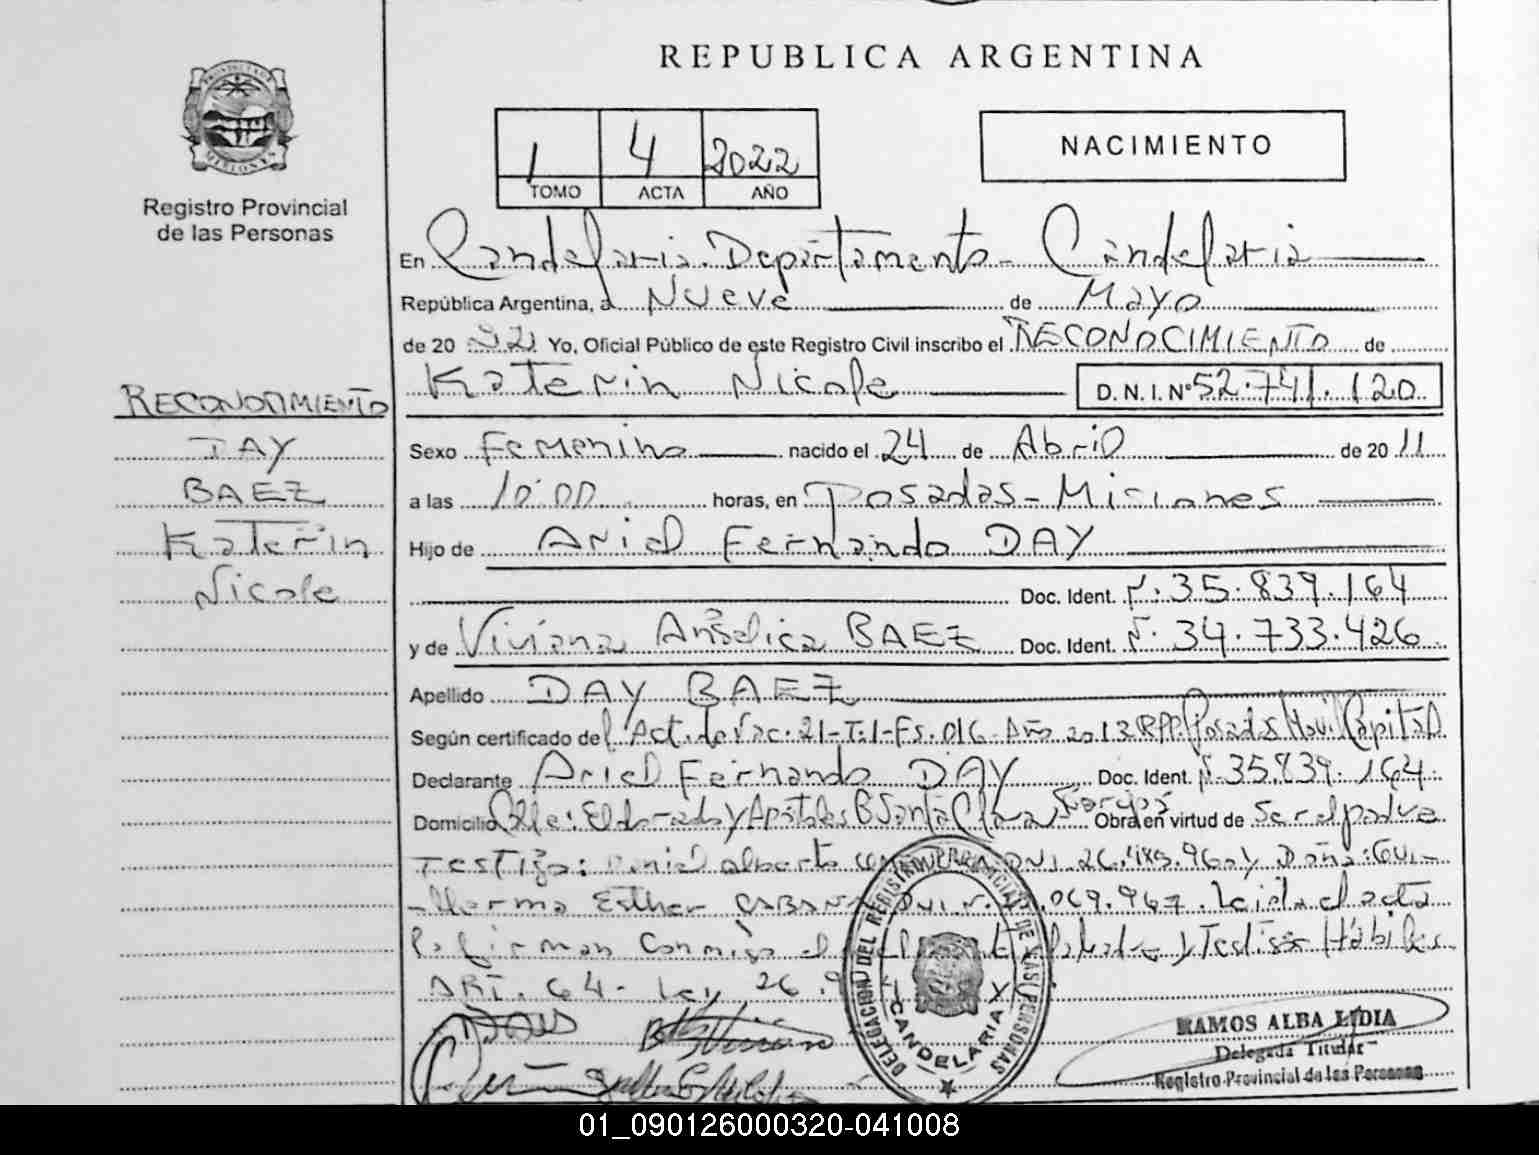 REPUBLICA ARGENTINA
NACIMIENTO
1 4 2022
TOMO ACTA AÑO
Registro Provincial
de las Personas
En Candelaria. Departamento - Candelaria
República Argentina, a Nueve de Mayo
de 20 22 Yo, Oficial Público de este Registro Civil inscribo el RECONOCIMIENTO de
Katerin Nicole D. N. I. Nº 52.741.120
RECONOCIMIENTO
DAY
BAEZ
Katerin
Nicole
Sexo Femenino nacido el 24 de Abril de 20 11
a las 10:00 horas, en Posadas - Misiones
Hijo de Ariel Fernando DAY
Doc. Ident. Nº. 35.839.164
y de Viviana Angelica BAEZ Doc. Ident. Nº. 34.733.426
Apellido DAY BAEZ
Según certificado del Act. de Nac. 21-T.1-Fs. 016 - Año 2013 RPP Posadas Capital
Declarante Ariel Fernando DAY Doc. Ident. Nº 35.839.164
Domicilio Calle: Eldorado y Apóstoles B Santa Clara Obra en virtud de Ser el padre
Testigo: Daniel alberto DNI. 26. y Doña: Gui-
-llerma Esther DNI. Nº .069.967. Leida el acta
la firman conmigo el y Testigos Hábiles
ART. 64 - Ley 26.
DELEGACION DEL REGISTRO PROVINCIAL DE LAS PERSONAS
CANDELARIA
RAMOS ALBA LIDIA
Delegada Titular
Registro Provincial de las Personas
01_090126000320-041008